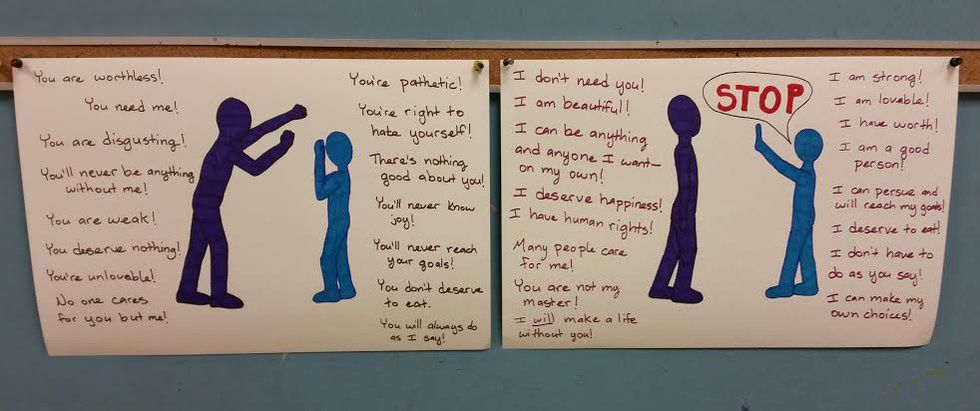 You are worthless!
You need me!
You are disgusting!
You'll never be anything
without me!
You are weak!
You deserve nothing!
You're unlovable!
No one cares
for you but me!
You're pathetic!
You're right to
hate yourself!
There's nothing
good about you!
You'll never know
joy!
You'll never reach
your goals!
You don't deserve
to eat.
You will always do
as I say!
I don't need you!
I am beautiful!
I can be anything
and anyone I want—
on my own!
I deserve happiness!
I have human rights!
Many people care
for me!
You are not my
master!
I will make a life
without you!
STOP
I am strong!
I am lovable!
I have worth!
I am a good
person!
I can persue and
will reach my goals!
I deserve to eat!
I don't have to
do as you say!
I can make my
own choices!